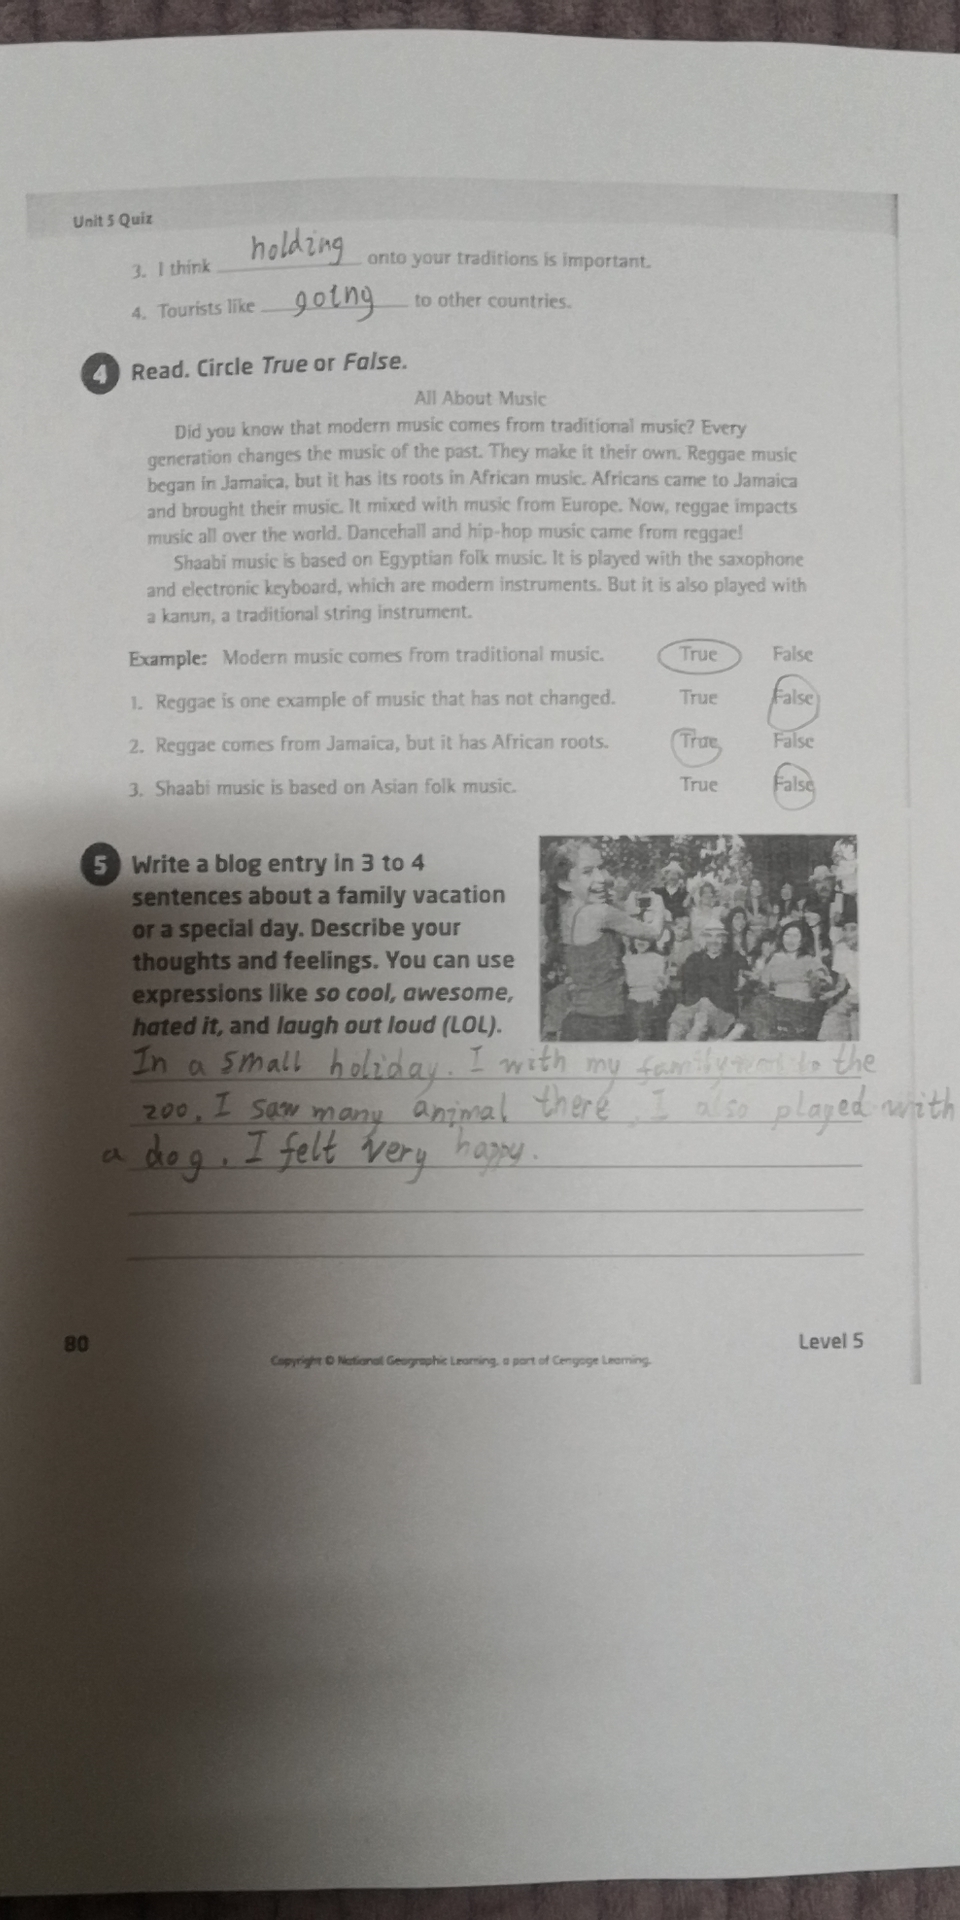 Unit 5 Quiz
3. I think holding onto your traditions is important.
4. Tourists like going to other countries.
4 Read. Circle True or False.
All About Music
Did you know that modern music comes from traditional music? Every
generation changes the music of the past. They make it their own. Reggae music
began in Jamaica, but it has its roots in African music. Africans came to Jamaica
and brought their music. It mixed with music from Europe. Now, reggae impacts
music all over the world. Dancehall and hip-hop music came from reggae!
Shaabi music is based on Egyptian folk music. It is played with the saxophone
and electronic keyboard, which are modern instruments. But it is also played with
a kanun, a traditional string instrument.
Example: Modern music comes from traditional music. True False
1. Reggae is one example of music that has not changed. True False
2. Reggae comes from Jamaica, but it has African roots. True False
3. Shaabi music is based on Asian folk music. True False
5 Write a blog entry in 3 to 4
sentences about a family vacation
or a special day. Describe your
thoughts and feelings. You can use
expressions like so cool, awesome,
hated it, and laugh out loud (LOL).
In a small holiday. I with my family went to the
zoo. I saw many animal there. I also played with
a dog. I felt very happy.
80
Level 5
Copyright © National Geographic Learning, a part of Cengage Learning.